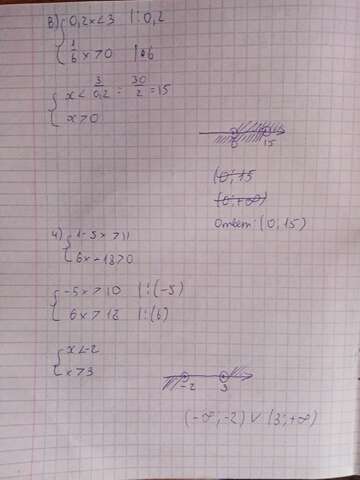 в) { 0,2x < 3 | : 0,2
{ 1/6 x > 0 | • 6
{ x < 3/0,2 = 30/2 = 15
{ x > 0
0 15
(0; 15
(0; +∞)
Ответ: (0; 15)
4) { 1-5x > 11
{ 6x - 18 > 0
{ -5x > 10 | : (-5)
{ 6x > 18 | : (6)
{ x < -2
{ x > 3
-2 3
(-∞; -2) ∨ (3; +∞)